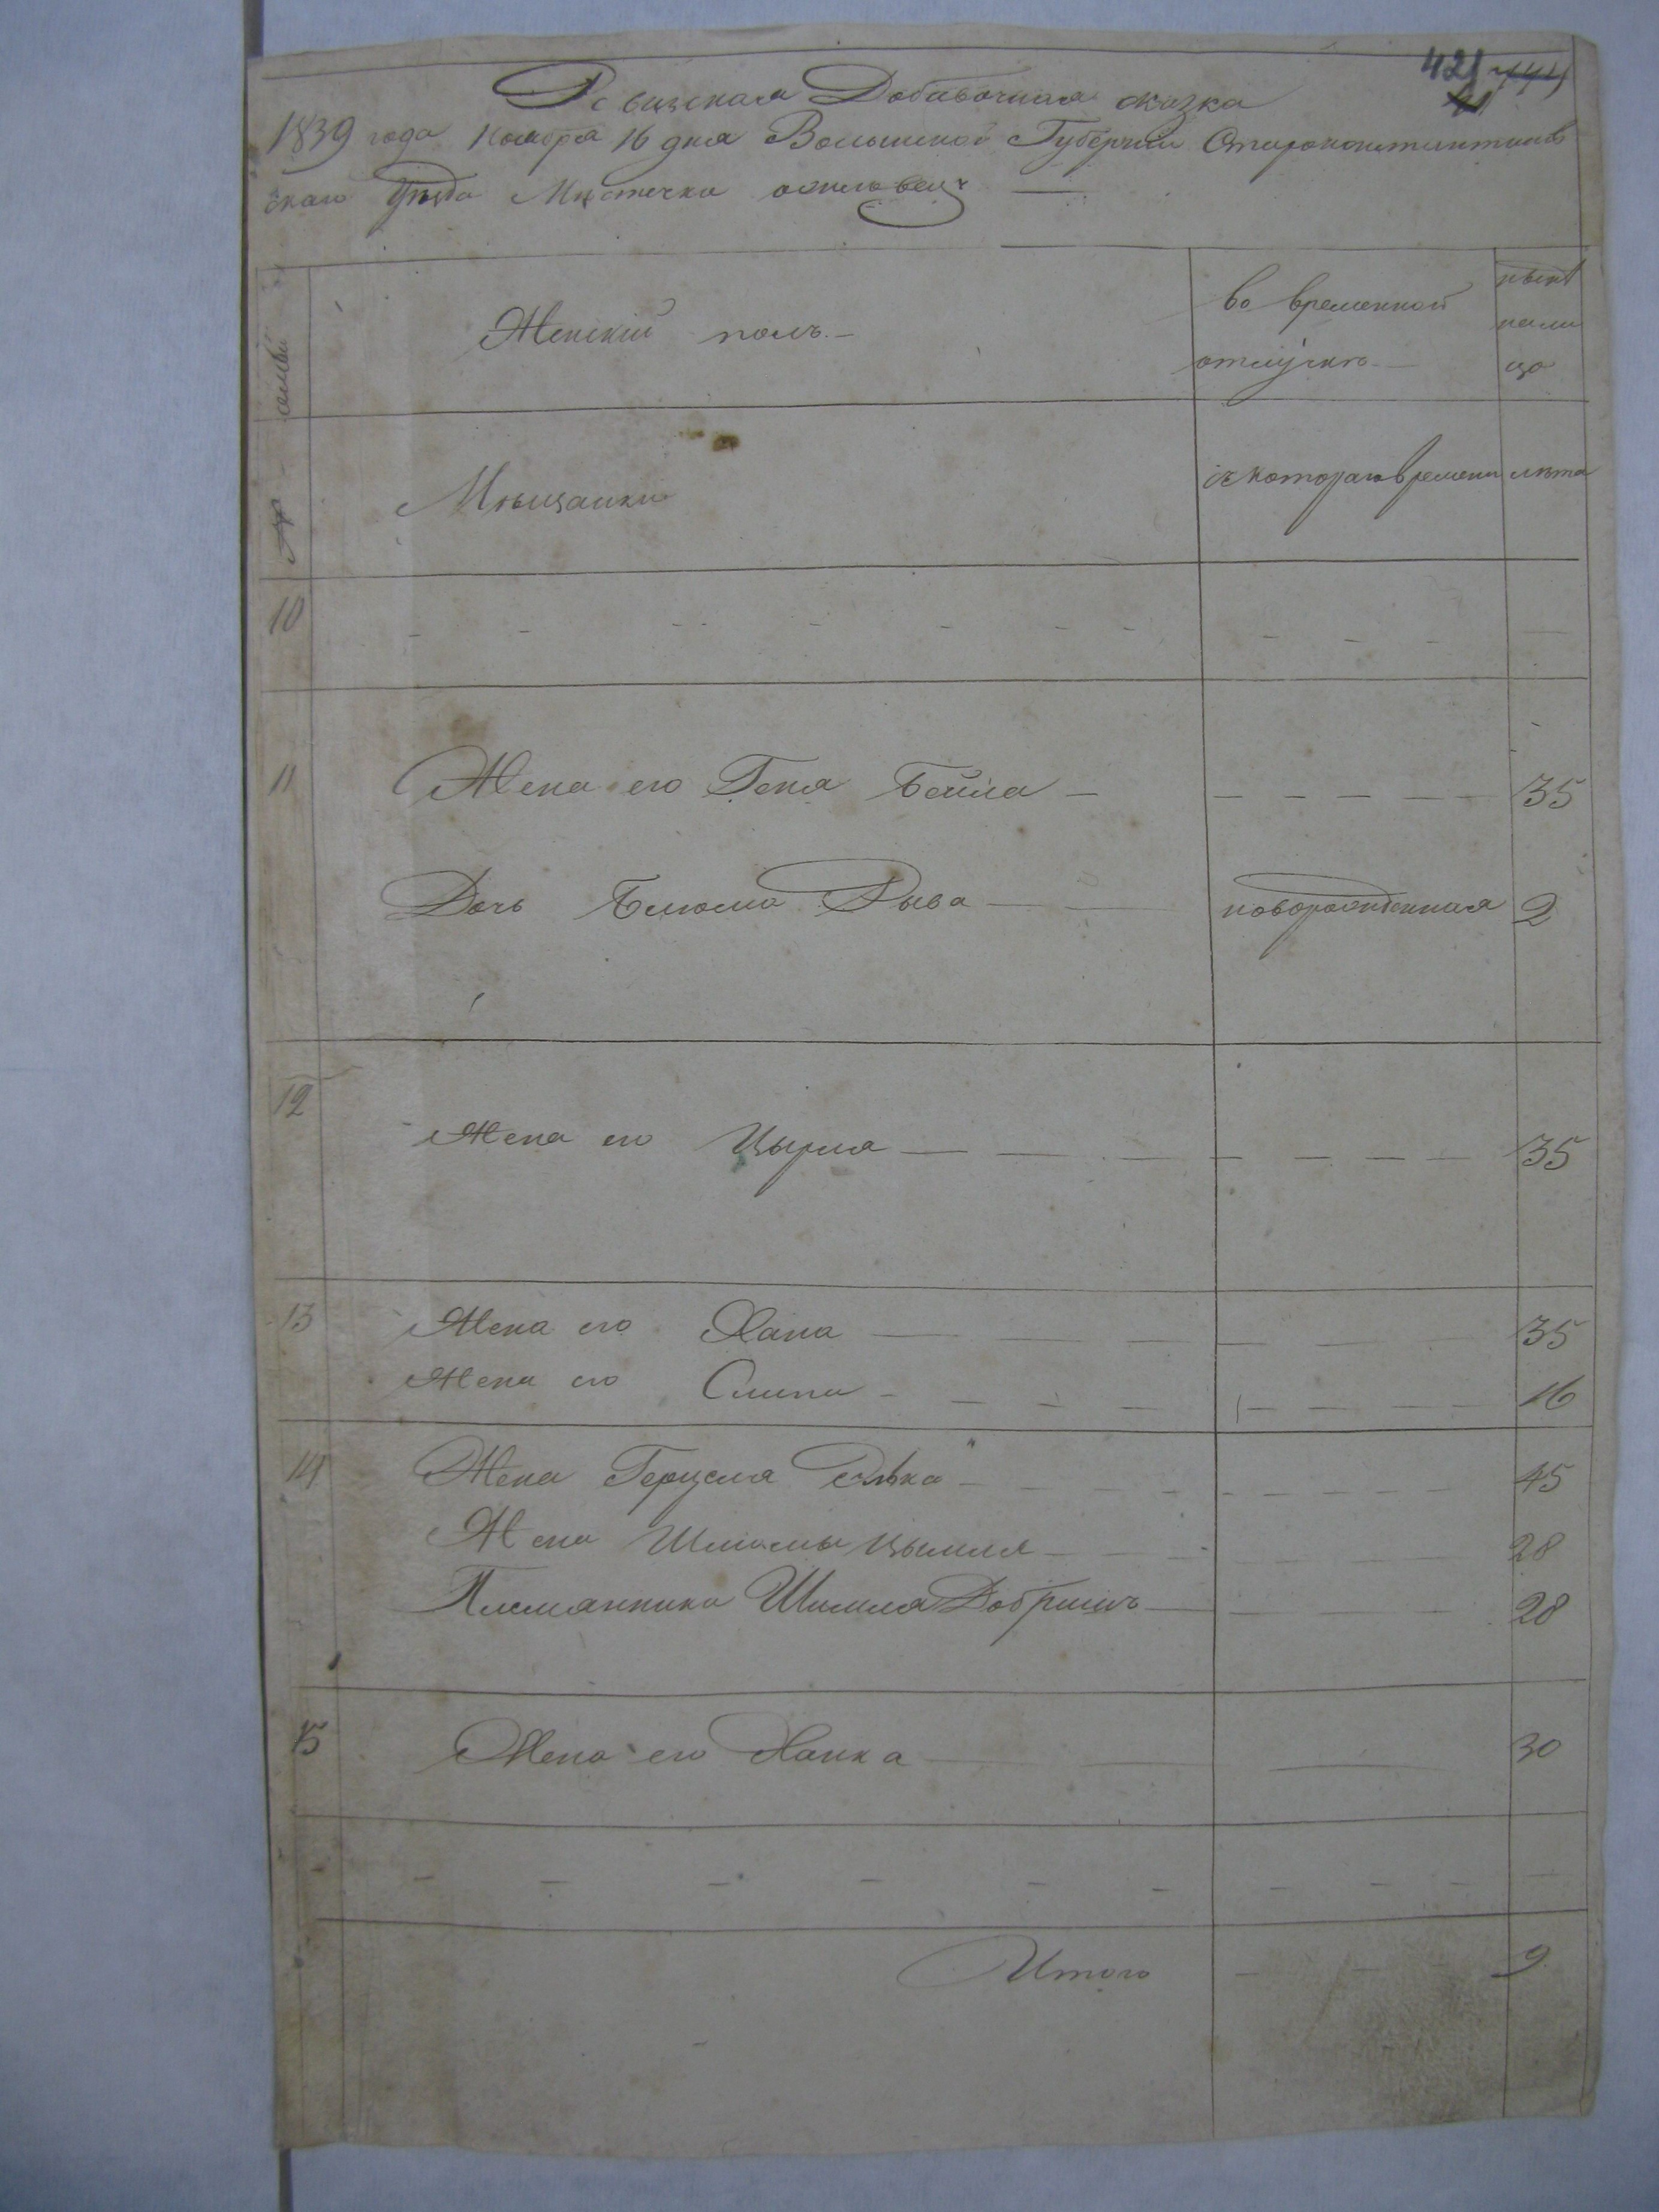 421 744
Ревизская Добавочная сказка
1839 года Ноября 16 дня Волынской Губернии Староконстантинов
скаго Уезда Местечка
№ семьи
Женскій полъ.—
во временной
отлучкѣ.—
ныне
на ли
цо
Мѣщанки
съ котораго времени
лѣта
10
11 Жена его Геня Бейла — 35
Дочь Блюма Рыва — новорожденная 2
12 Жена его Цырля — 35
13 Жена его Хана — 35
Жена его — 16
14 Жена Герцеля — 45
Жена Шлиомы — 28
Племянника Шмиля Добришъ — 28
15 Жена его Ханка — 30
Итого — 9